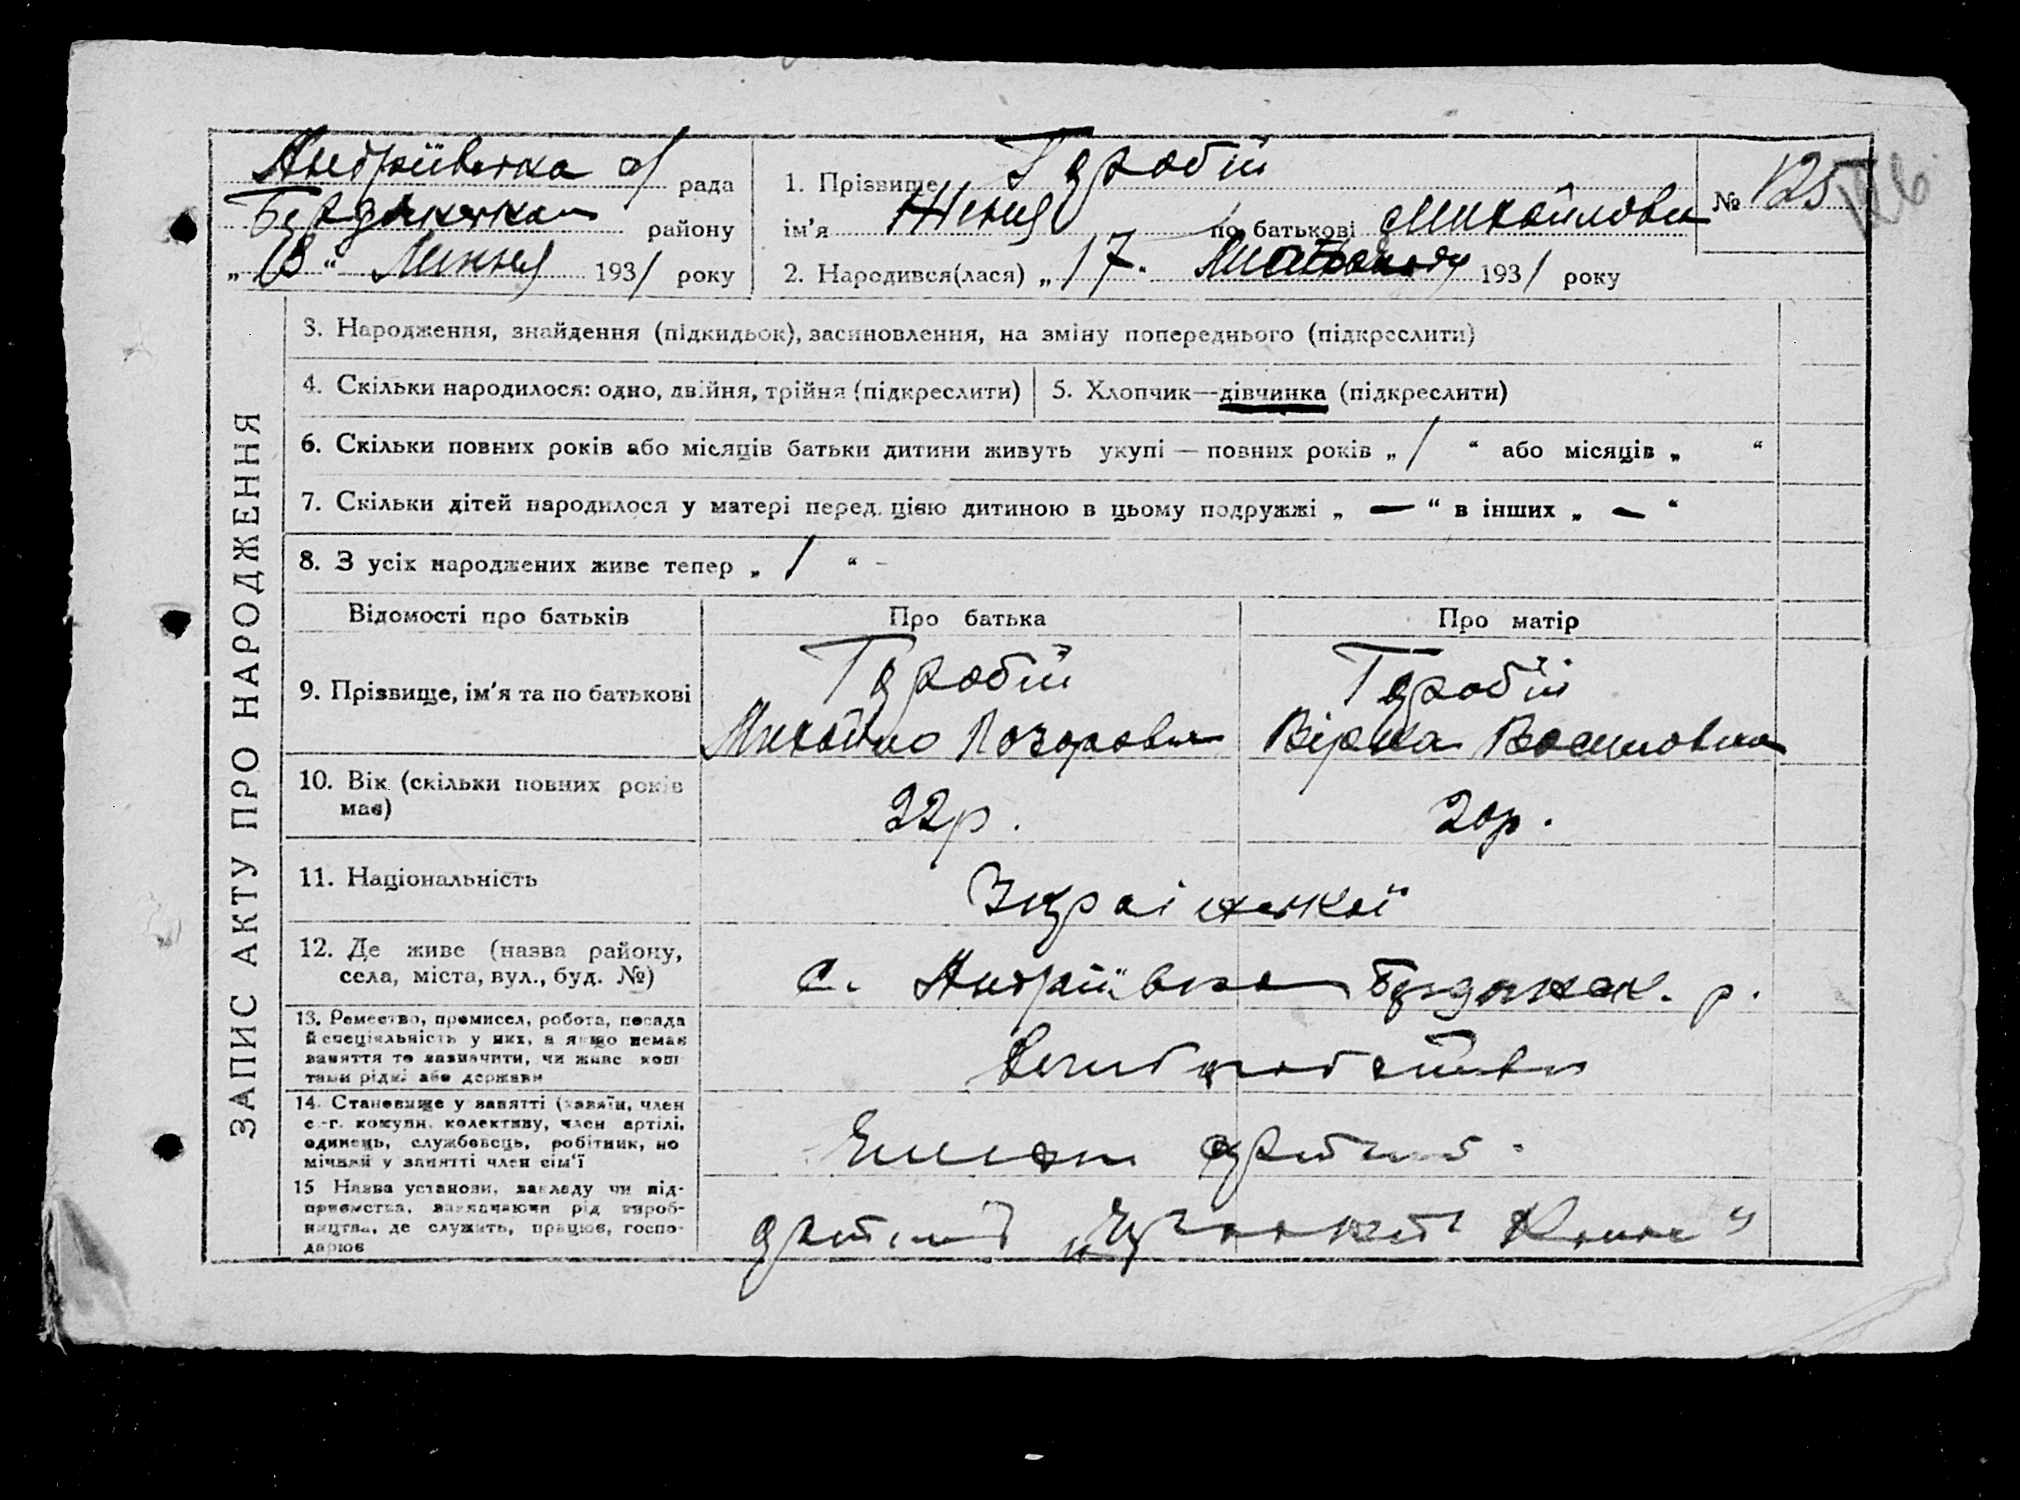 Андріївська с/ рада
Бердянськ району
„ 13 “ Липня 1931 року
1. Прізвище Гаробій
ім'я Женя по батькові Михайловн
№ 125
126
2. Народився(лася) „ 17 “ 1931 року
ЗАПИС АКТУ ПРО НАРОДЖЕННЯ
3. Народження, знайдення (підкидьок), засиновлення, на зміну попереднього (підкреслити)
4. Скільки народилося: одно, двійня, трійня (підкреслити)
5. Хлопчик—дівчинка (підкреслити)
6. Скільки повних років або місяців батьки дитини живуть укупі — повних років „ 1 “ або місяців „ “
7. Скільки дітей народилося у матері перед цією дитиною в цьому подружжі „ — “ в інших „ — “
8. З усіх народжених живе тепер „ 1 “ -
Відомості про батьків
Про батька
Про матір
9. Прізвище, ім'я та по батькові
Гаробій
Михайло Лазарович
Гаробій
Вірка Василовна
10. Вік (скільки повних років
має)
22р.
20р.
11. Національність
Української
12. Де живе (назва району,
села, міста, вул., буд. №)
с. Андріївка Бердянськ. р.
13. Ремество, промисел, робота, посада
й спеціяльність у них, а якщо немає
заняття то зазначити, чи живе кош-
тами рідні або держави
14. Становище у занятті (хазяїн, член
с.-г. комуни, колективу, член артілі,
одинець, службовець, робітник, по
мічний у занятті член сім'ї
Член артілі
15 Назва установи, закладу чи під-
приємства, зазначаючи рід вироб-
ництва, де служить, працює, госпо-
дарює